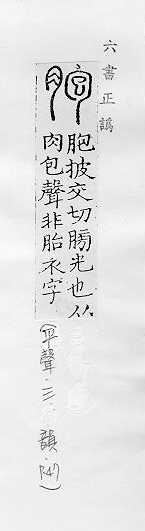 六書正譌
胞披交切膀光也从
肉包聲非胎衣字
(平聲.三.韻.P.47)